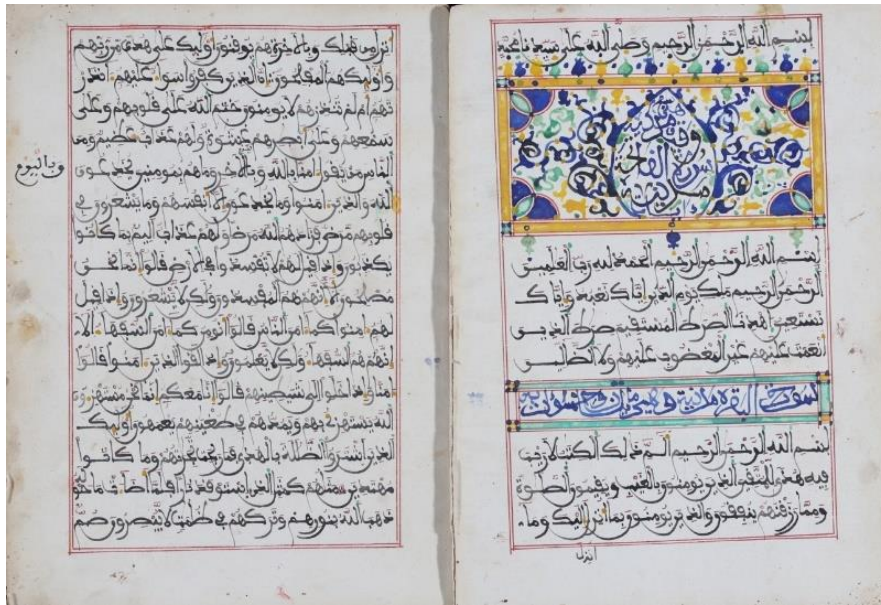 بسم الله الرحمن الرحيم وصلى الله على سيدنا محمد
الفاتحة
بسم الله الرحمن الرحيم الحمد لله رب العلمين
الرحمن الرحيم ملك يوم الدين اياك نعبد واياك
نستعين اهدنا الصرط المستقيم صرط الذين
انعمت عليهم غير المغضوب عليهم ولا الضالين
سورة البقرة مدنية وهي
بسم الله الرحمن الرحيم الم ذلك الكتب لا ريب
فيه هدى للمتقين الذين يومنون بالغيب ويقيمون الصلوة
ومما رزقنهم ينفقون والذين يومنون بما انزل اليك وما
انزل
انزل من قبلك وبالاخرة هم يوقنون اوليك على هدى من ربهم
واوليك هم المفلحون ان الذين كفروا سواء عليهم ءانذر
تهم ام لم تنذرهم لا يومنون ختم الله على قلوبهم وعلى
سمعهم وعلى ابصرهم غشوة ولهم عذاب عظيم ومن
الناس من يقول ءامنا بالله وبالاخر وما هم بمومنين يخدعون
وباليوم
الله والذين ءامنوا وما يخدعون الا انفسهم وما يشعرون في
قلوبهم مرض فزادهم الله مرضا ولهم عذاب اليم بما كانوا
يكذبون واذا قيل لهم لا تفسدوا في الارض قالوا انما نحن
مصلحون الا انهم هم المفسدون ولكن لا يشعرون واذا قيل
لهم ءامنوا كما ءامن الناس قالوا انومن كما ءامن السفهاء الا
انهم هم السفهاء ولكن لا يعلمون واذا لقوا الذين ءامنوا قالوا
ءامنا واذا خلوا الى شيطينهم قالوا انا معكم انما نحن مستهزءون
الله يستهزئ بهم ويمدهم في طغينهم يعمهون اوليك
الذين اشتروا الضللة بالهدى فما ربحت تجرتهم وما كانوا
مهتدين مثلهم كمثل الذي استوقد نارا فلما اضاءت ما حوله
ذهب الله بنورهم وتركهم في ظلمت لا يبصرون صم